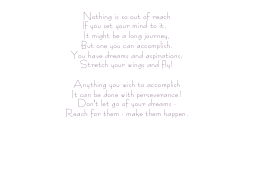 Nothing is so out of reach
If you set your mind to it.
It might be a long journey,
But one you can accomplish.
You have dreams and aspirations;
Stretch your wings and fly!

Anything you wish to accomplish
It can be done with perseverance!
Don't let go of your dreams -
Reach for them - make them happen.